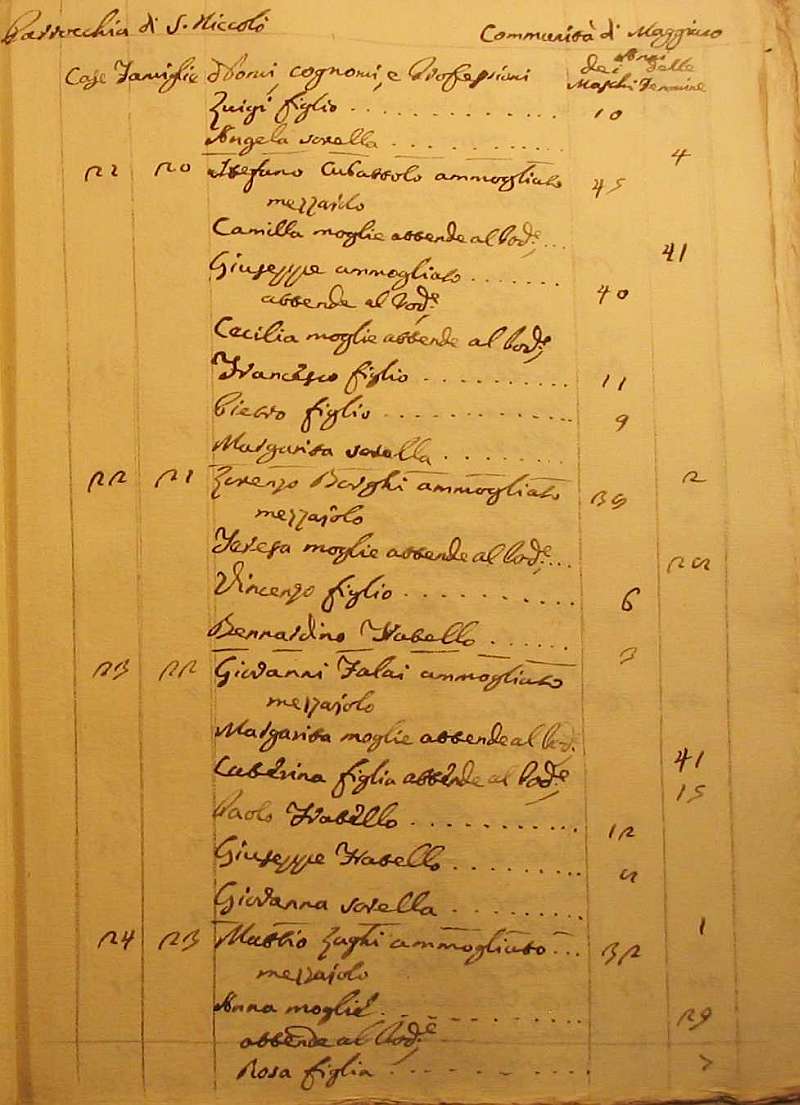 Parrocchia di S. Niccolò Communità di Maggiuso
Anni
Case Famiglie Nomi, cognomi, e Professioni dei delle
Maschi Femmine
Luigi figlio 10
Angela sorella 4
22 20 Stefano ammogliato 45
mezzaiolo
Camilla moglie attende al Pod.e 41
Giuseppe ammogliato 40
attende al Pod.e
Cecilia moglie attende al Pod.e
Francesco figlio 11
Pietro figlio 9
Margarita sorella 2
22 21 Lorenzo Borghi ammogliato 39
mezzaiolo
Teresa moglie attende al Pod.e 25
Vincenzo figlio 6
Bernardino Fratello 3
23 22 Giovanni Falai ammogliato
mezzaiolo
Margarita moglie attende al Pod.e 41
Catérina figlia attende al Pod.e 15
Paolo Fratello 12
Giuseppe Fratello 5
Giovanna sorella 1
24 23 Mattio Laghi ammogliato 32
mezzaiolo
Anna moglie 29
attende al Pod.e
Rosa figlia 7